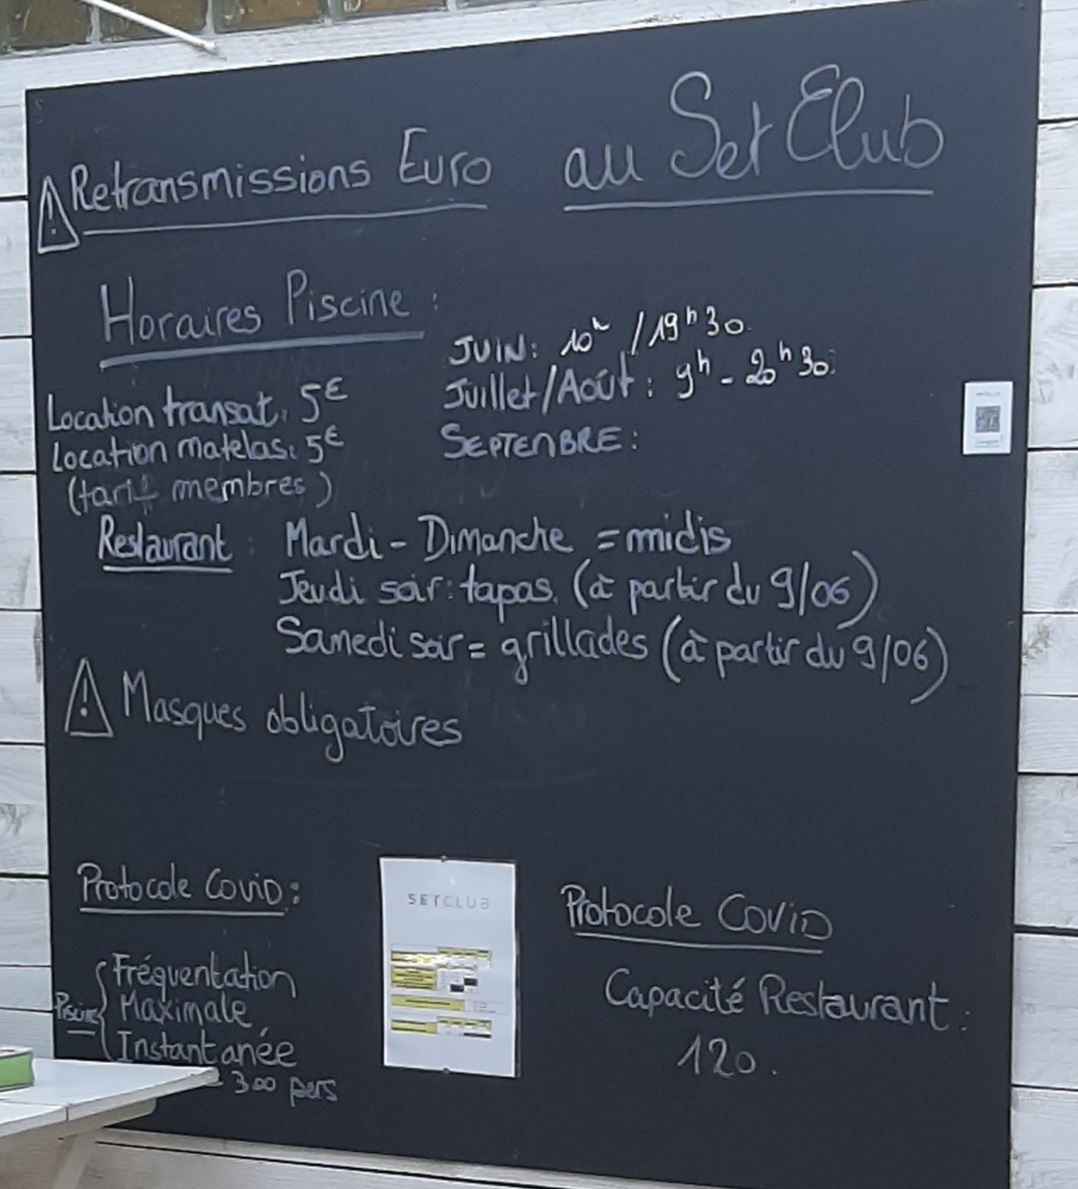 Retransmissions Euro au Set Club
Horaires Piscine :
JUIN: 10h / 19h30
Juillet/Août : 9h - 20h30
SEPTENBRE :
Location transat: 5€
Location matelas: 5€
(tarif membres)
Restaurant : Mardi - Dimanche = midis
Jeudi soir: tapas (à partir du 9/06)
Samedi soir = grillades (à partir du 9/06)
Masques obligatoires
Protocole Covid :
Piscine
Fréquentation
Maximale
Instantanée
300 pers
SETCLUB
Protocole Covid
Capacité Restaurant :
120.